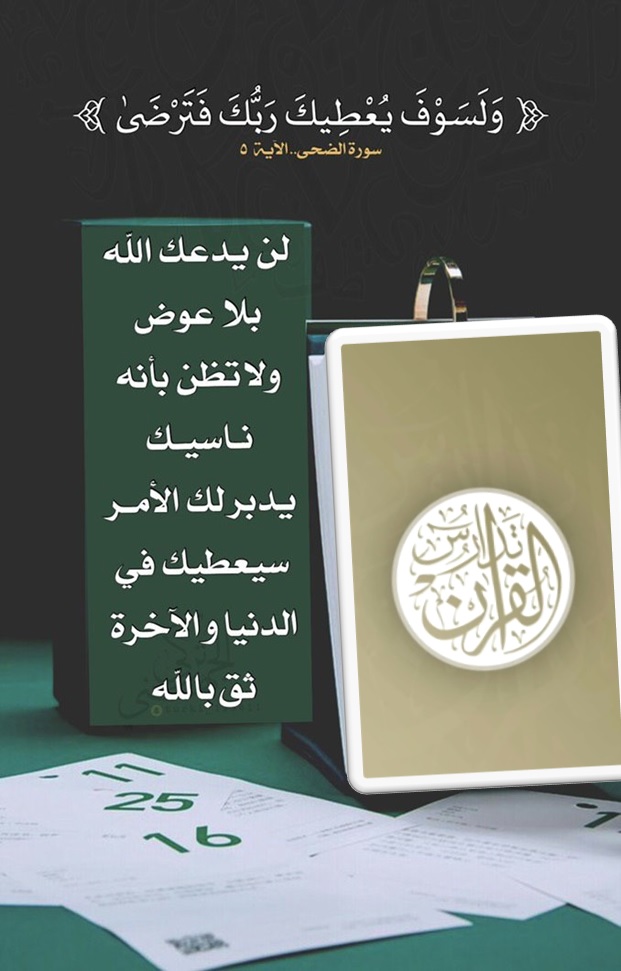 ﴿ وَلَسَوْفَ يُعْطِيكَ رَبُّكَ فَتَرْضَىٰ ﴾
سورة الضحى..الآية ٥
لن يدعك الله
بلا عوض
ولاتظن بأنه
ناسيك
يدبرلك الأمر
سيعطيك في
الدنيا والآخرة
ثق بالله
تَدَارُسُ
القرآن
11
25
16